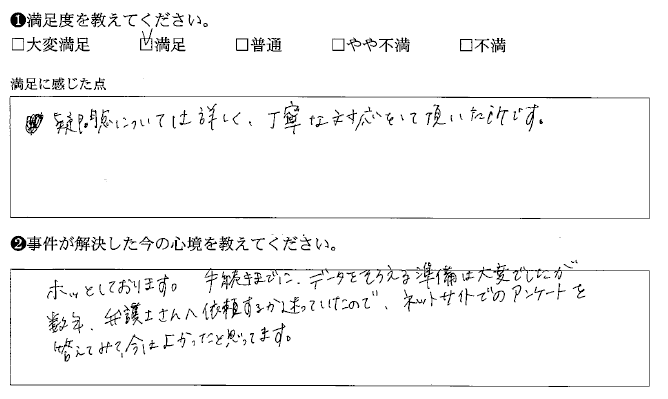 ❶満足度を教えてください。
□大変満足 ☑満足 □普通 □やや不満 □不満
満足に感じた点
疑問感については詳しく、丁寧な対応をして頂いた所です。
❷事件が解決した今の心境を教えてください。
ホッとしております。手続きまでに、データをそろえる準備は大変でしたが
数年、弁護士さんへ依頼するか迷っていたので、ネットサイトでのアンケートを
答えてみて、今はよかったと思ってます。